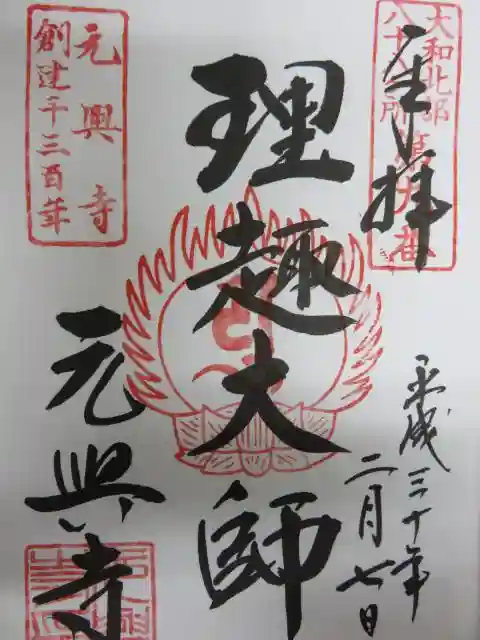 大和北部
八十八所第九番
奉拝
平成三十年
二月七日
理趣大師
元興寺
創建千三百年
元興寺